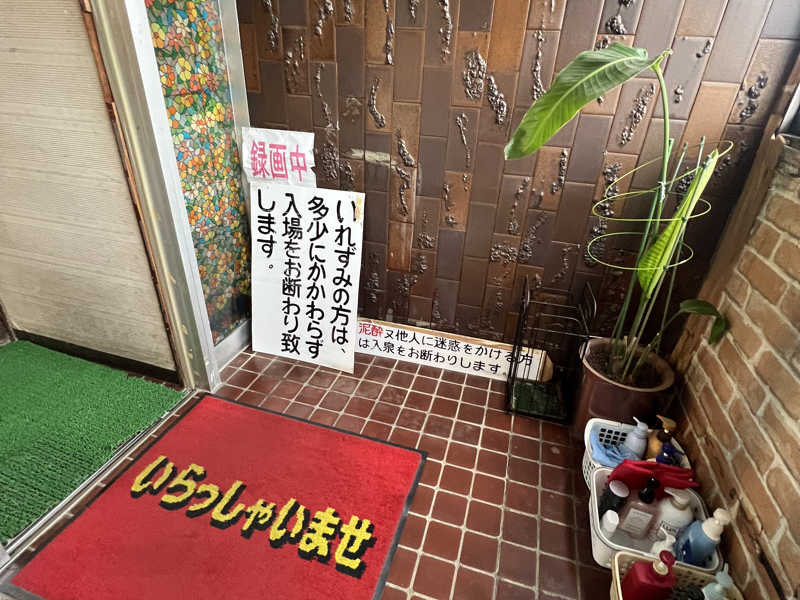 録画中
いれずみの方は、
多少にかかわらず
入場をお断わり致
します。
泥酔又他人に迷惑をかける方
は入泉をお断わりします。
いらっしゃいませ